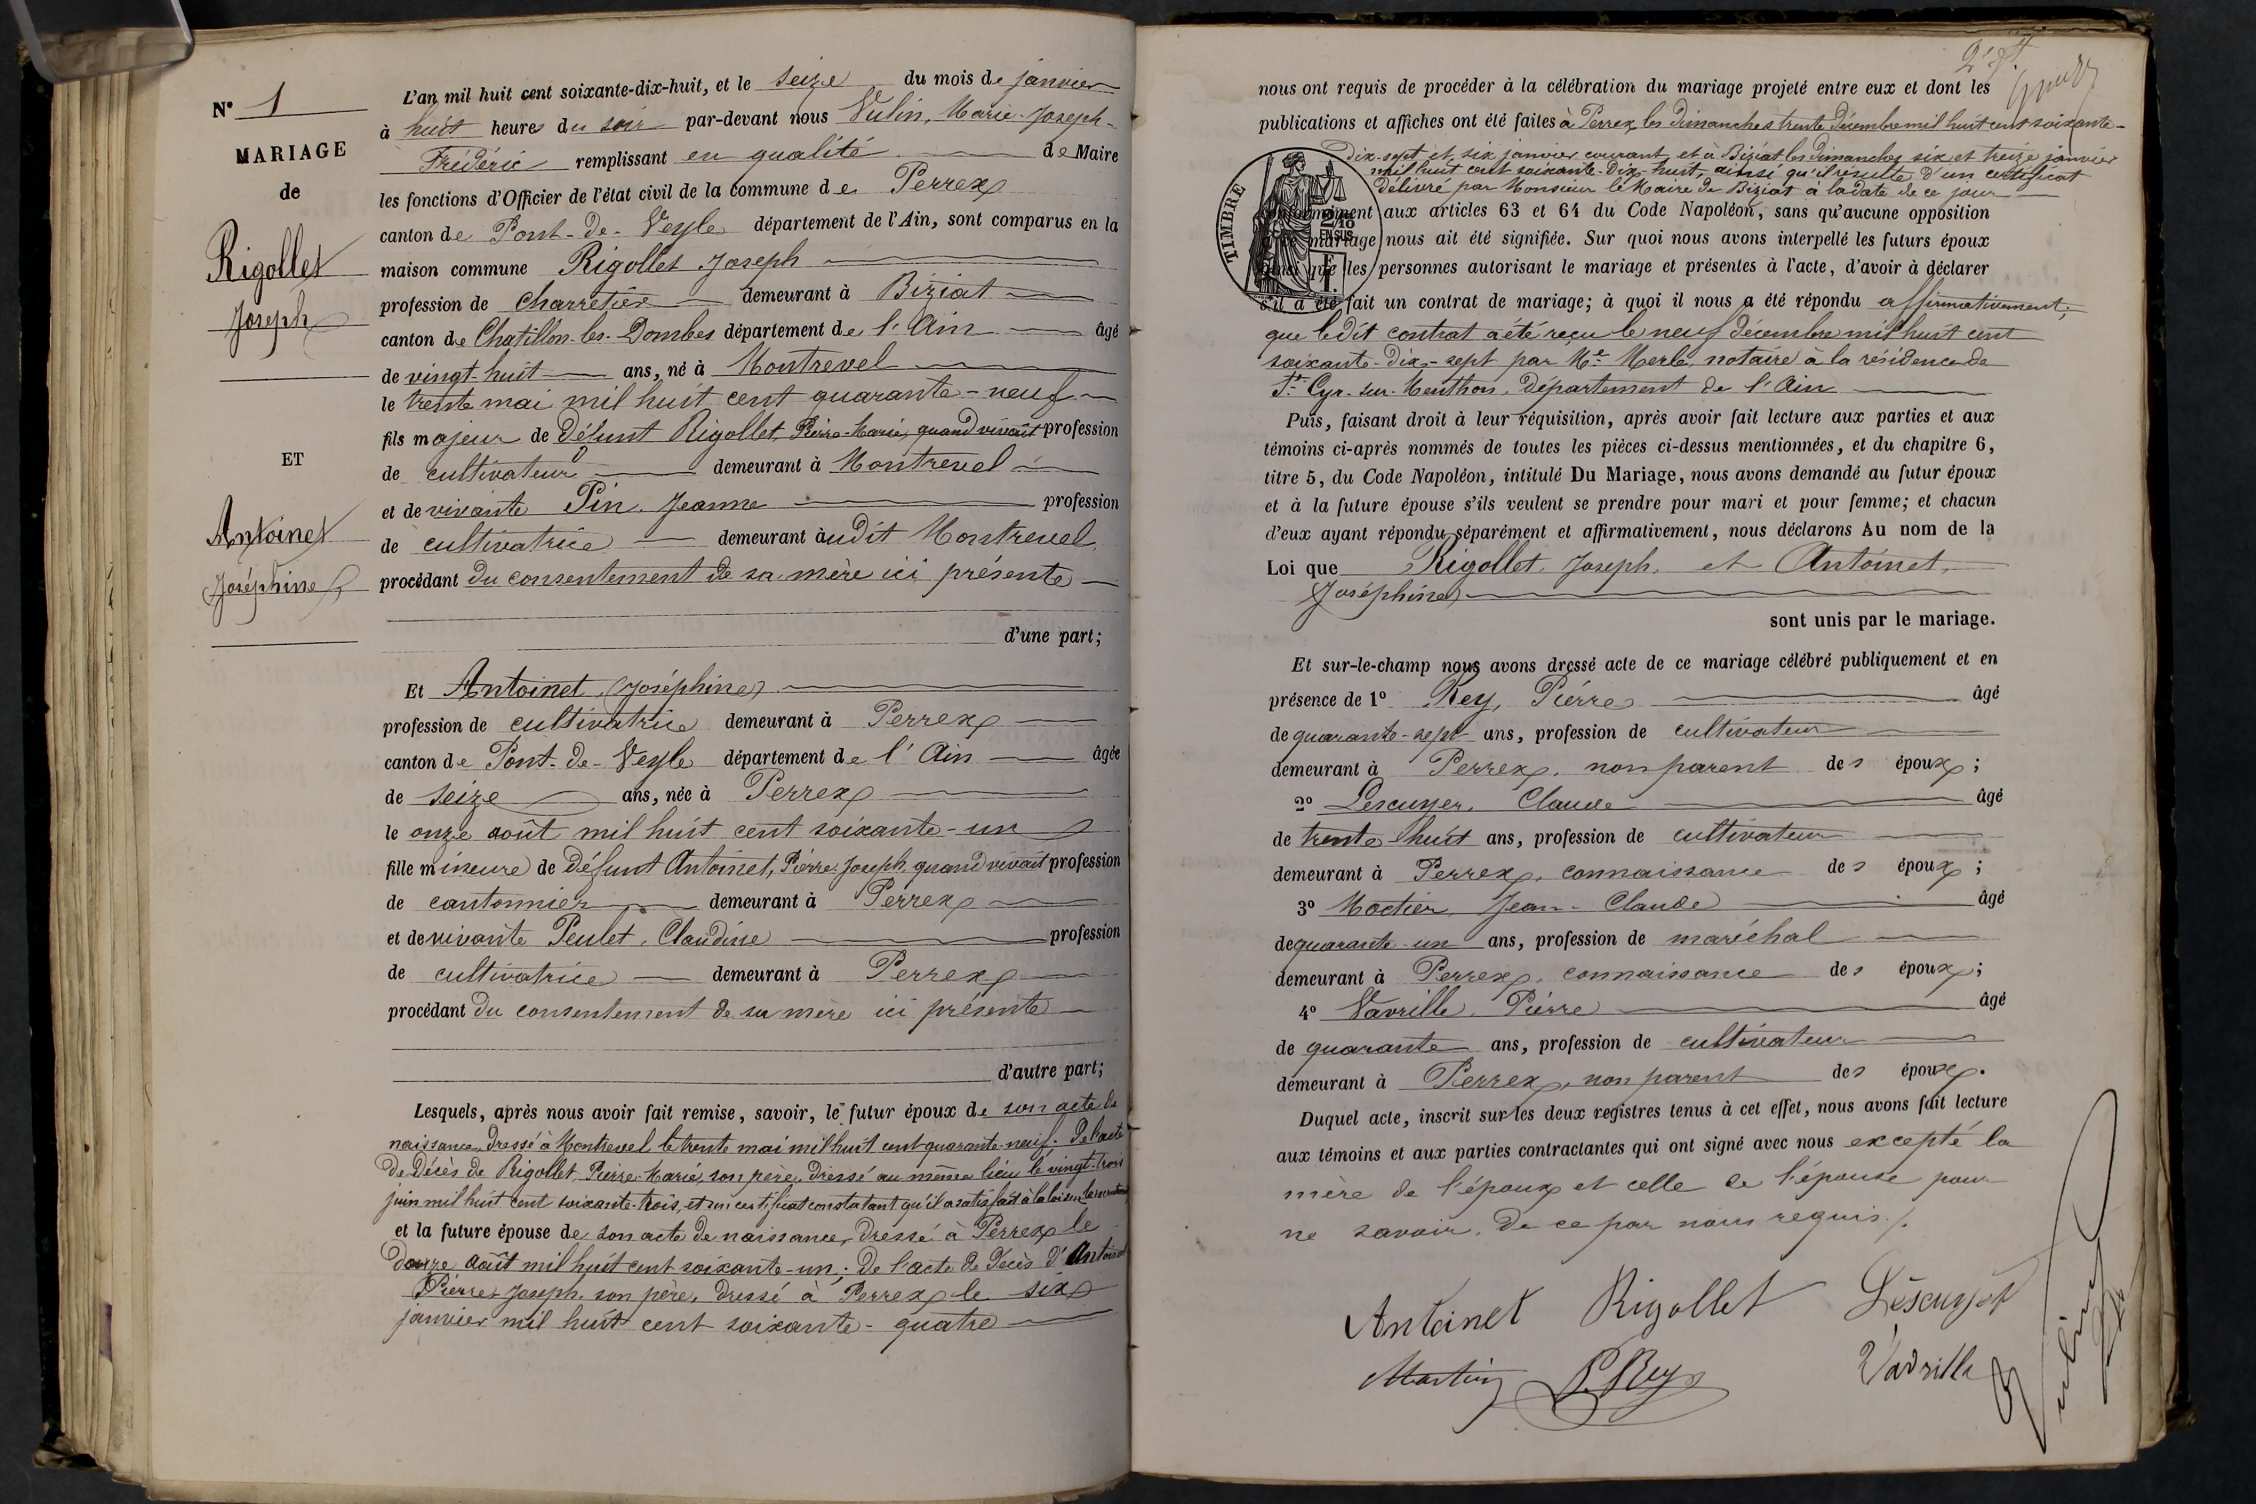 N° 1
MARIAGE
de
Rigollet
Joseph
ET
Antoinet
Joséphine
L'an mil huit cent soixante-dix-huit, et le seize du mois de janvier
à huit heures du soir par-devant nous Vulin, Marie-Joseph-
Frédéric remplissant en qualité de Maire
les fonctions d'Officier de l'état civil de la commune de Perrex
canton de Pont-de-Veyle département de l'Ain, sont comparus en la
maison commune Rigollet Joseph
profession de charretier demeurant à Biziat
canton de Chatillon-les-Dombes département de l'Ain âgé
de vingt-huit ans, né à Montrevel
le trente mai mil huit cent quarante-neuf
fils majeur de défunt Rigollet, Pierre-Marie, quand vivait profession
de cultivateur demeurant à Montrevel
et de vivante Pin, Jeanne profession
de cultivatrice demeurant audit Montrevel
procédant du consentement de sa mère ici présente
d'une part;
Et Antoinet, Joséphine
profession de cultivatrice demeurant à Perrex
canton de Pont-de-Veyle département de l'Ain âgée
de seize ans, née à Perrex
le onze août mil huit cent soixante-un
fille mineure de défunt Antoinet, Pierre-Joseph, quand vivait profession
de cantonnier demeurant à Perrex
et de vivante Peulet, Claudine profession
de cultivatrice demeurant à Perrex
procédant du consentement de sa mère ici présente
d'autre part;
Lesquels, après nous avoir fait remise, savoir, le futur époux de son acte de
naissance, dressé à Montrevel le trente mai mil huit cent quarante-neuf. De l'acte
de décès de Rigollet, Pierre-Marie, son père, dressé au même lieu le vingt-trois
juin mil huit cent soixante-trois, et un certificat constatant qu'il a satisfait à la loi sur le recrutement
et la future épouse de son acte de naissance, dressé à Perrex le
douze août mil huit cent soixante-un; de l'acte de décès d'Antoinet
Pierre-Joseph, son père, dressé à Perrex le six
janvier mil huit cent soixante-quatre
nous ont requis de procéder à la célébration du mariage projeté entre eux et dont les
publications et affiches ont été faites à Perrex les dimanches trente décembre mil huit cent soixante-
dix-sept et six janvier courant, et à Biziat les dimanches six et treize janvier
mil huit cent soixante-dix-huit, ainsi qu'il résulte d'un certificat
délivré par Monsieur le Maire de Biziat à la date de ce jour
TIMBRE
2/10
EN SUS
conformément aux articles 63 et 64 du Code Napoléon, sans qu'aucune opposition
mariage nous ait été signifiée. Sur quoi nous avons interpellé les futurs époux
ainsi que les personnes autorisant le mariage et présentes à l'acte, d'avoir à déclarer
s'il a été fait un contrat de mariage; à quoi il nous a été répondu affirmativement;
que ledit contrat a été reçu le neuf décembre mil huit cent
soixante-dix-sept par Me Merle, notaire à la résidence de
St Cyr-sur-Menthon, département de l'Ain
Puis, faisant droit à leur réquisition, après avoir fait lecture aux parties et aux
témoins ci-après nommés de toutes les pièces ci-dessus mentionnées, et du chapitre 6,
titre 5, du Code Napoléon, intitulé Du Mariage, nous avons demandé au futur époux
et à la future épouse s'ils veulent se prendre pour mari et pour femme; et chacun
d'eux ayant répondu séparément et affirmativement, nous déclarons Au nom de la
Loi que Rigollet, Joseph, et Antoinet,
Joséphine
sont unis par le mariage.
Et sur-le-champ nous avons dressé acte de ce mariage célébré publiquement et en
présence de 1° Rey, Pierre âgé
de quarante-sept ans, profession de cultivateur
demeurant à Perrex, non parent des époux;
2° Lescuyer, Claude âgé
de trente-huit ans, profession de cultivateur
demeurant à Perrex, connaissance des époux;
3° Moctier, Jean-Claude âgé
de quarante-un ans, profession de maréchal
demeurant à Perrex, connaissance des époux;
4° Vavrille, Pierre âgé
de quarante ans, profession de cultivateur
demeurant à Perrex, non parent des époux.
Duquel acte, inscrit sur les deux registres tenus à cet effet, nous avons fait lecture
aux témoins et aux parties contractantes qui ont signé avec nous excepté la
mère de l'époux et celle de l'épouse pour
ne savoir, de ce par nous requis./.
Antoinet Rigollet Lescuyer
P. Rey Vavrille
Vulin